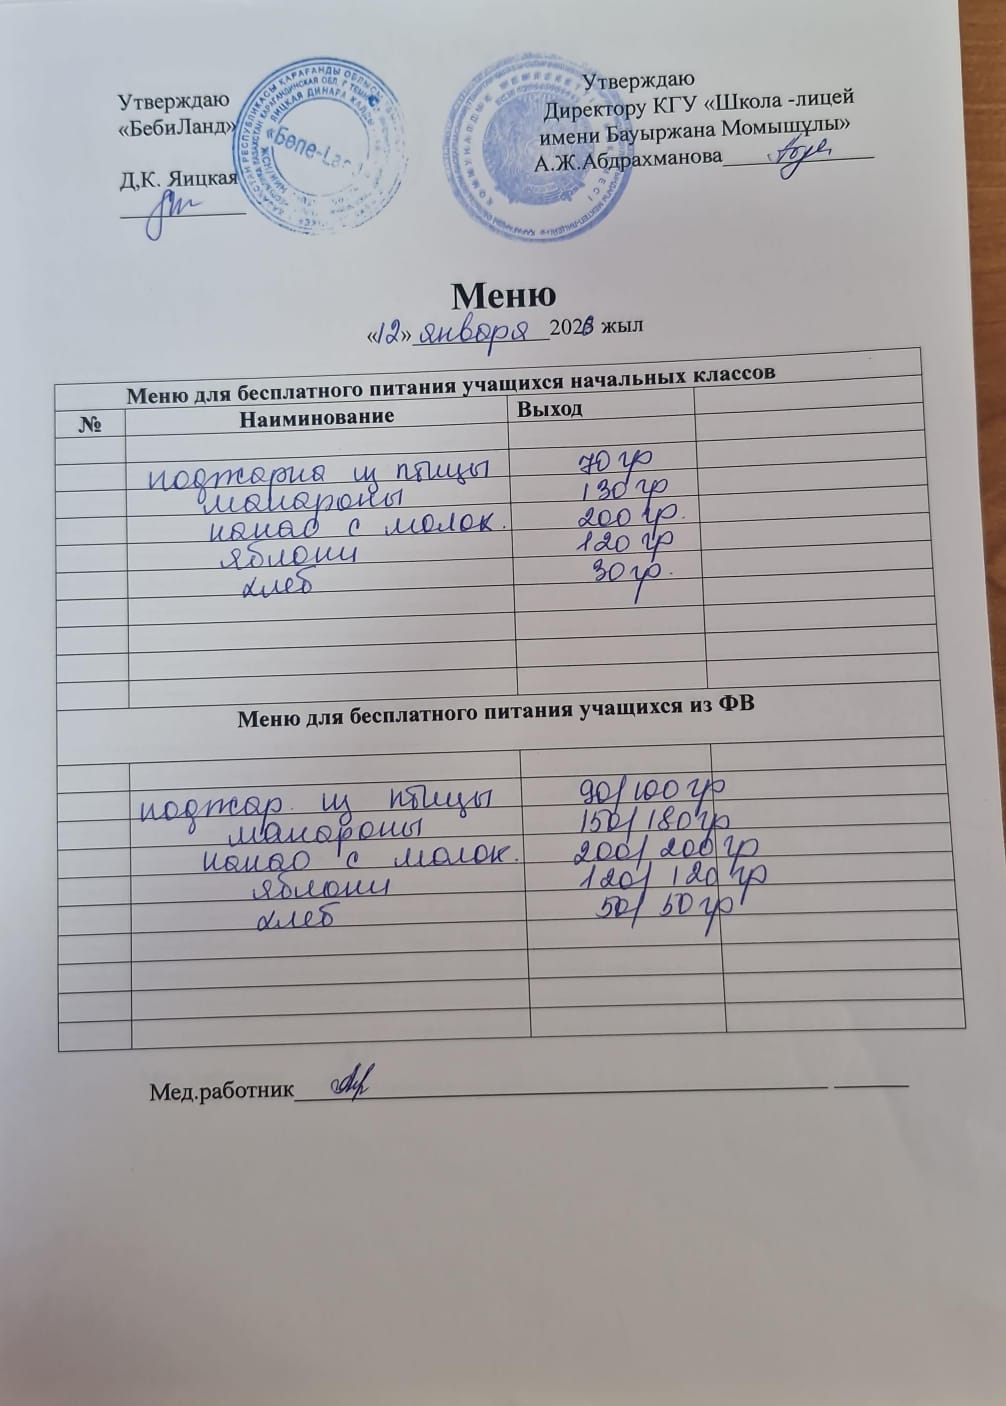 Утверждаю
«БебиЛанд»
Д,К. Яицкая
Утверждаю
Директору КГУ «Школа -лицей
имени Бауыржана Момышұлы»
А.Ж.Абдрахманова
«Бөпе-Lа
Меню
«12» января 2026 жыл
Меню для бесплатного питания учащихся начальных классов
№ Наиминование Выход
поджарка из птицы 70 гр
макароны 130 гр
какао с молок. 200 гр.
яблоки 120 гр
хлеб 30 гр.
Меню для бесплатного питания учащихся из ФВ
поджар. из птицы 90/100 гр
макароны 150/180 гр
какао с молок. 200/200 гр
яблоки 120/120 гр
хлеб 50/50 гр
Мед.работник